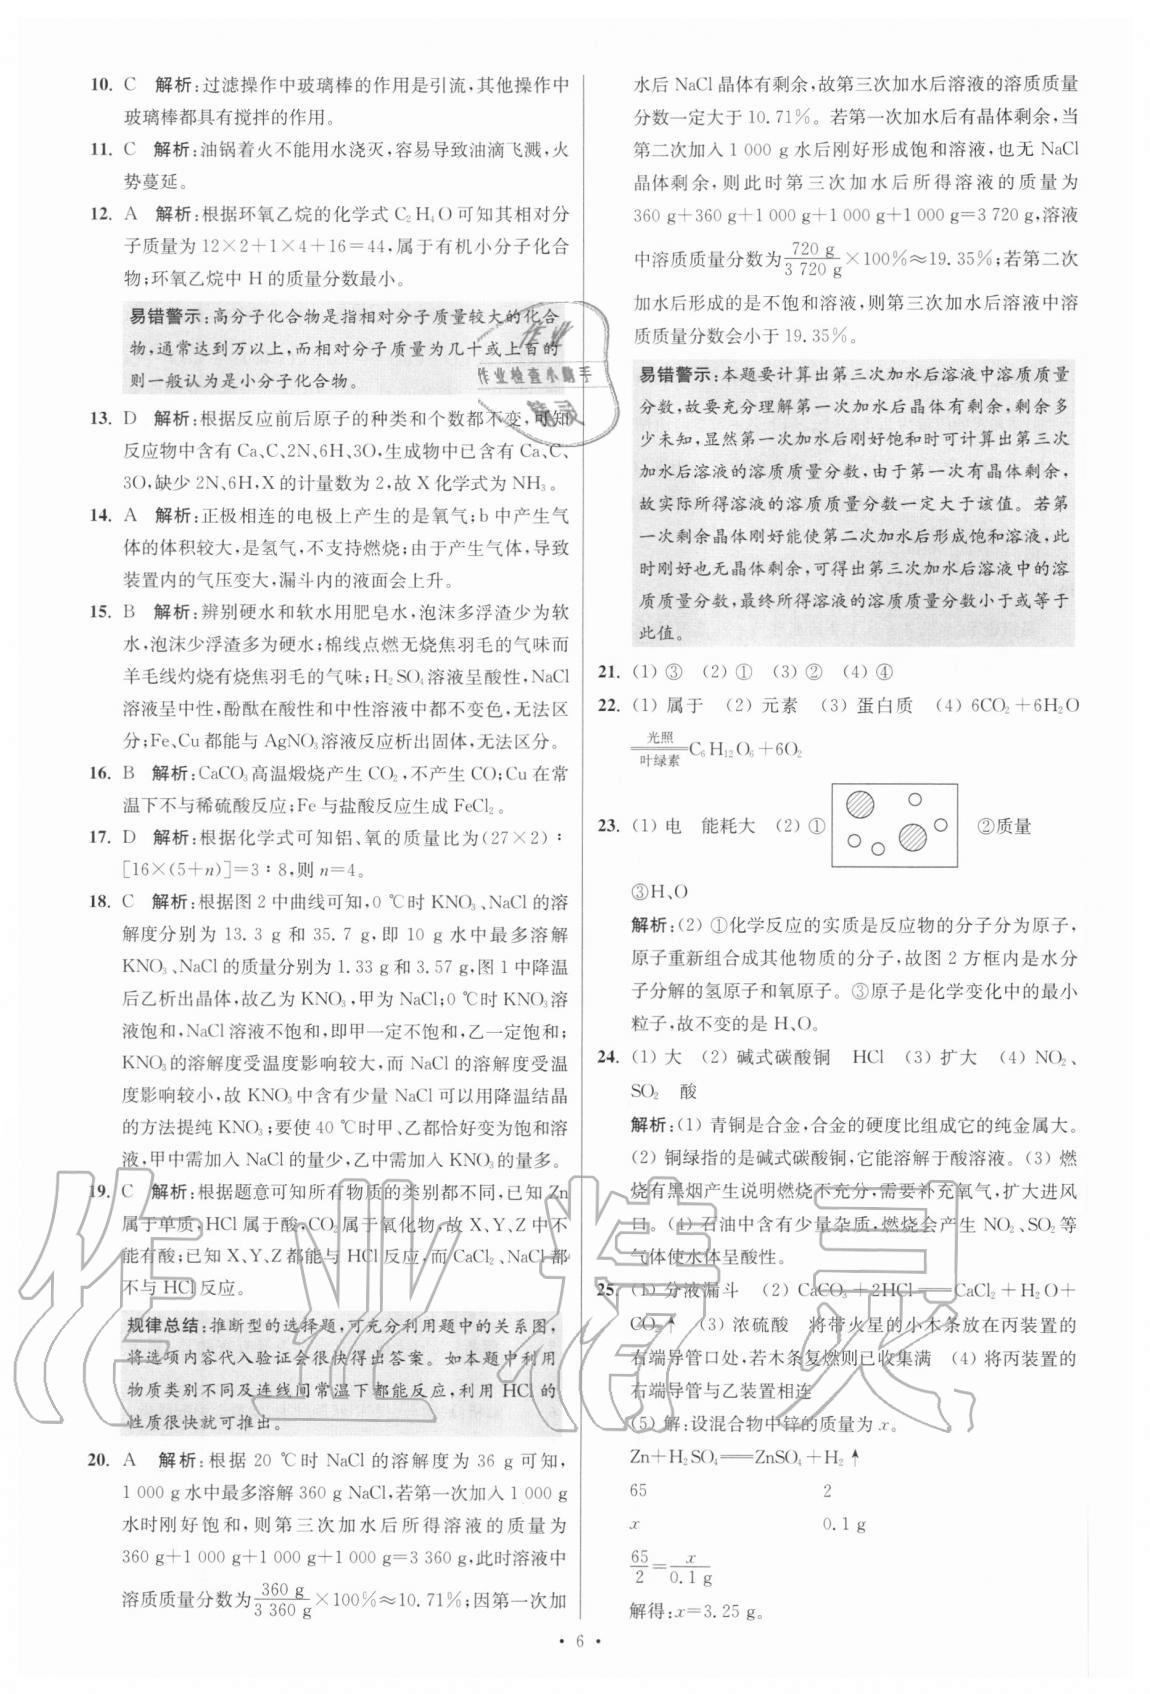 10. C 解析:过滤操作中玻璃棒的作用是引流,其他操作中
玻璃棒都具有搅拌的作用。
11. C 解析:油锅着火不能用水浇灭,容易导致油滴飞溅,火
势蔓延。
12. A 解析:根据环氧乙烷的化学式 C₂H₄O 可知其相对分
子质量为 12×2+1×4+16=44,属于有机小分子化合
物;环氧乙烷中 H 的质量分数最小。
易错警示:高分子化合物是指相对分子质量较大的化合
物,通常达到万以上,而相对分子质量为几十或上百的
则一般认为是小分子化合物。
13. D 解析:根据反应前后原子的种类和个数都不变,可知
反应物中含有 Ca、C、2N、6H、3O,生成物中已有 Ca、C、
3O,缺少 2N、6H,X 的计量数为 2,故 X 化学式为 NH₃。
14. A 解析:正极相连的电极上产生的是氧气;b 中产生气
体的体积较大,是氢气,不支持燃烧;由于产生气体,导致
装置内的气压变大,漏斗内的液面会上升。
15. B 解析:辨别硬水和软水用肥皂水,泡沫多浮渣少为软
水,泡沫少浮渣多为硬水;棉线点燃无烧焦羽毛的气味而
羊毛线灼烧有烧焦羽毛的气味;H₂SO₄溶液呈酸性,NaCl
溶液呈中性,酚酞在酸性和中性溶液中都不变色,无法区
分;Fe、Cu 都能与 AgNO₃溶液反应析出固体,无法区分。
16. B 解析:CaCO₃高温煅烧产生 CO₂,不产生 CO;Cu 在常
温下不与稀硫酸反应;Fe 与盐酸反应生成 FeCl₂。
17. D 解析:根据化学式可知铝、氧的质量比为(27×2)∶
[16×(5+n)]=3∶8,则 n=4。
18. C 解析:根据图 2 中曲线可知,0 ℃时 KNO₃、NaCl 的溶
解度分别为 13.3 g 和 35.7 g,即 10 g 水中最多溶解
KNO₃、NaCl 的质量分别为 1.33 g 和 3.57 g,图 1 中降温
后乙析出晶体,故乙为 KNO₃,甲为 NaCl;0 ℃时 KNO₃溶
液饱和,NaCl 溶液不饱和,即甲一定不饱和,乙一定饱和;
KNO₃的溶解度受温度影响较大,而 NaCl 的溶解度受温
度影响较小,故 KNO₃中含有少量 NaCl 可以用降温结晶
的方法提纯 KNO₃;要使 40 ℃时甲、乙都恰好变为饱和溶
液,甲中需加入 NaCl 的量少,乙中需加入 KNO₃的量多。
19. C 解析:根据题意可知所有物质的类别都不同,已知 Zn
属于单质,HCl 属于酸,CO₂属于氧化物,故 X、Y、Z 中不
能有酸;已知 X、Y、Z 都能与 HCl 反应,而 CaCl₂、NaCl 都
不与 HCl 反应。
规律总结:推断型的选择题,可充分利用题中的关系图,
将选项内容代入验证会很快得出答案。如本题中利用
物质类别不同及连线间常温下都能反应,利用 HCl 的
性质很快就可推出。
20. A 解析:根据 20 ℃时 NaCl 的溶解度为 36 g 可知,
1 000 g 水中最多溶解 360 g NaCl,若第一次加入 1 000 g
水时刚好饱和,则第三次加水后所得溶液的质量为
360 g+1 000 g+1 000 g+1 000 g=3 360 g,此时溶液中
溶质质量分数为 360 g/3 360 g×100%≈10.71%;因第一次加
水后 NaCl 晶体有剩余,故第三次加水后溶液的溶质质量
分数一定大于 10.71%。若第一次加水后有晶体剩余,当
第二次加入 1 000 g 水后刚好形成饱和溶液,也无 NaCl
晶体剩余,则此时第三次加水后所得溶液的质量为
360 g+360 g+1 000 g+1 000 g+1 000 g=3 720 g,溶液
中溶质质量分数为 720 g/3 720 g×100%≈19.35%;若第二次
加水后形成的是不饱和溶液,则第三次加水后溶液中溶
质质量分数会小于 19.35%。
易错警示:本题要计算出第三次加水后溶液中溶质质量
分数,故要充分理解第一次加水后晶体有剩余,剩余多
少未知,显然第一次加水后刚好饱和时可计算出第三次
加水后溶液的溶质质量分数,由于第一次有晶体剩余,
故实际所得溶液的溶质质量分数一定大于该值。若第
一次剩余晶体刚好能使第二次加水后形成饱和溶液,此
时刚好也无晶体剩余,可得出第三次加水后溶液中的溶
质质量分数,最终所得溶液的溶质质量分数小于或等于
此值。
21. (1) ③ (2) ① (3) ② (4) ④
22. (1) 属于 (2) 元素 (3) 蛋白质 (4) 6CO₂+6H₂O
光照
叶绿素 C₆H₁₂O₆+6O₂
23. (1) 电 能耗大 (2) ① ②质量
③H、O
解析:(2) ①化学反应的实质是反应物的分子分为原子,
原子重新组合成其他物质的分子,故图 2 方框内是水分
子分解的氢原子和氧原子。③原子是化学变化中的最小
粒子,故不变的是 H、O。
24. (1) 大 (2) 碱式碳酸铜 HCl (3) 扩大 (4) NO₂、
SO₂ 酸
解析:(1) 青铜是合金,合金的硬度比组成它的纯金属大。
(2) 铜绿指的是碱式碳酸铜,它能溶解于酸溶液。(3) 燃
烧有黑烟产生说明燃烧不充分,需要补充氧气,扩大进风
口。(4) 石油中含有少量杂质,燃烧会产生 NO₂、SO₂等
气体使水体呈酸性。
25. (1) 分液漏斗 (2) CaCO₃+2HCl══CaCl₂+H₂O+
CO₂↑ (3) 浓硫酸 将带火星的小木条放在丙装置的
右端导管口处,若木条复燃则已收集满 (4) 将丙装置的
右端导管与乙装置相连
(5) 解:设混合物中锌的质量为 x。
Zn+H₂SO₄══ZnSO₄+H₂↑
65 2
x 0.1 g
65/2=x/0.1 g
解得:x=3.25 g。
• 6 •
作业
作业检查小助手
精灵
作业精灵